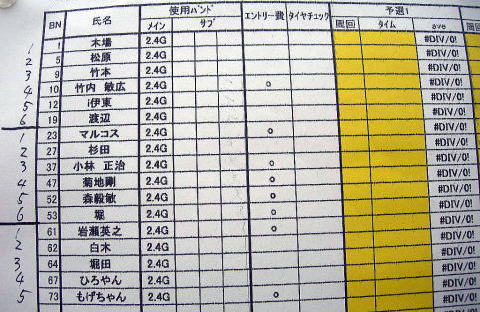 BN 氏名 使用ﾊﾞﾝﾄﾞ エントリー費 タイヤチェック 予選1
メイン サブ 周回 タイム ave 周回
1 1 木場 2.4G #DIV/0!
2 5 松原 2.4G #DIV/0!
3 9 竹本 2.4G #DIV/0!
4 10 竹内 敏広 2.4G ○ #DIV/0!
5 12 i伊東 2.4G #DIV/0!
6 19 渡辺 2.4G #DIV/0!
1 23 マルコス 2.4G ○ #DIV/0!
2 27 杉田 2.4G #DIV/0!
3 37 小林 正治 2.4G ○ #DIV/0!
4 47 菊地剛 2.4G ○ #DIV/0!
5 52 森毅敏 2.4G ○ #DIV/0!
6 53 堀 2.4G ○ #DIV/0!
1 61 岩瀬英之 2.4G ○ #DIV/0!
2 62 白木 2.4G #DIV/0!
3 64 堀田 2.4G #DIV/0!
4 67 ひろやん 2.4G #DIV/0!
5 73 もげちゃん 2.4G ○ #DIV/0!